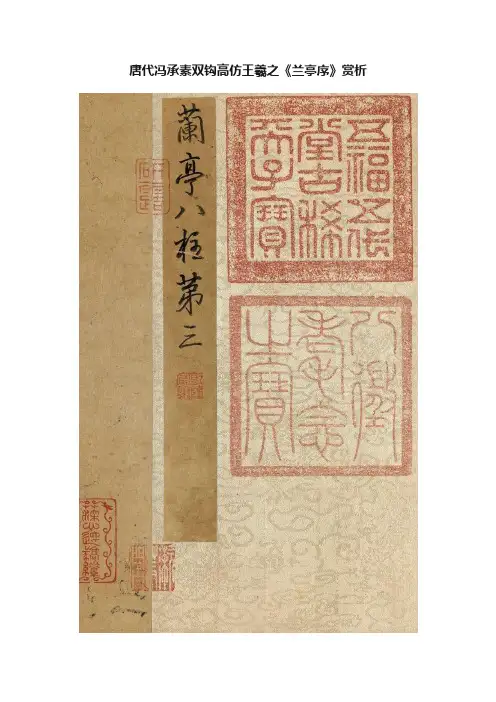 唐代冯承素双钩高仿王羲之《兰亭序》赏析
五福五代
堂古稀
天子寶
八徵
耄念
之寶
蘭亭八柱第三